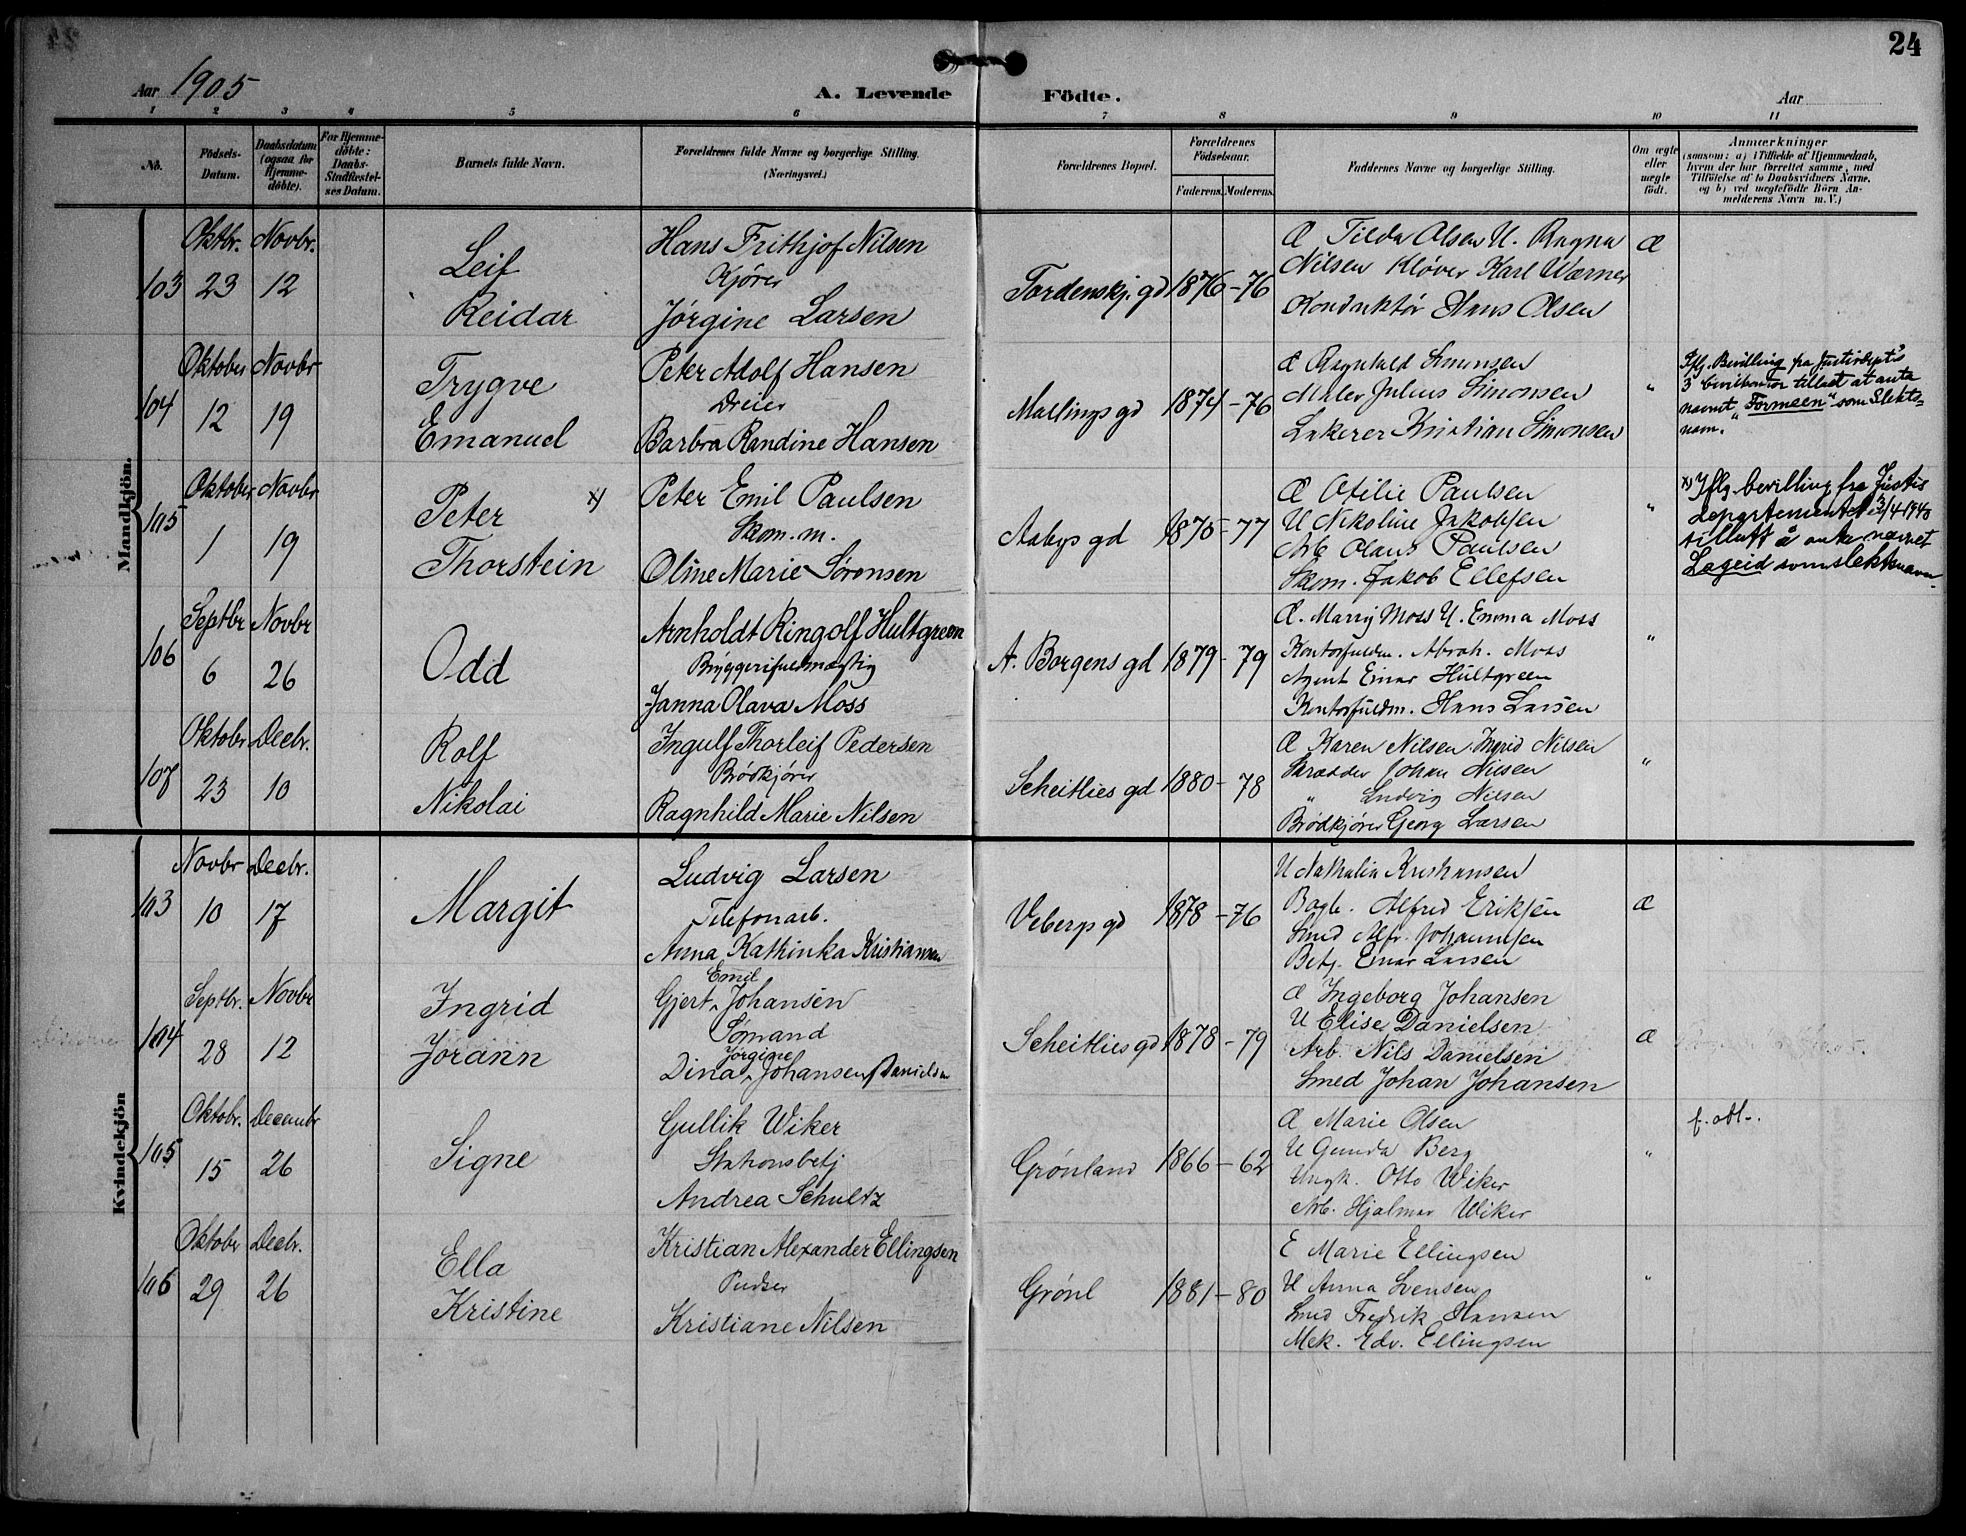 24
Aar 1905
A. Levende Födte.
Aar
1 2 3 4 5 6 7 8 9 10 11
No.
Födsels-Datum.
Daabsdatum (ogsaa for Hjemme-döbte).
For Hjemme-döbte: Daabs-Stadfæstel-ses Datum.
Barnets fulde Navn.
Forældrenes fulde Navne og borgerlige Stilling.
(Næringsvei.)
Forældrenes Bopæl.
Forældrenes Födselsaar.
Faderens. Moderens.
Faddernes Navne og borgerlige Stilling.
Om ægte eller uægte födt.
Anmærkninger
(saasom: a) i Tilfælde af Hjemmedaab,
hvem der har forrettet samme, med
Tilföielse af to Daabsvidners Navne,
og b) ved uægtefödte Börn An-
melderens Navn m. V.)
Mandkjön.
103 Oktbr. 23 Novbr. 12
Leif
Reidar
Hans Frithjof Nilsen
Kjører
Jørgine Larsen
Tordenskj. gd 1876-76
Æ Tilda Olsen U. Ragna
Nilsen Kløver Karl Wærner
Konduktør Hans Olsen
Æ
104 Oktober 12 Novbr 19
Trygve
Emanuel
Peter Adolf Hansen
Dreier
Barbra Randine Hansen
Mallings gd 1874-76
Æ Ragnhild Simonsen
Maler Julius Simonsen
Lakerer Kristian Simonsen
"
Iflg. Bevilling fra Justisdept's
3' civilkontor tillatt at anta
navnet "Formoen" som Slekts-
navn.
105 Oktober 1 Novbr 19
Peter x)
Thorstein
Peter Emil Paulsen
Skom. m.
Oline Marie Sørensen
Aabys gd 1875-77
Æ Otilie Paulsen
U Nikoline Jakobsen
Arb Olaus Paulsen
Skom. Jakob Ellefsen
"
x) Iflg. bevilling fra Justis
departementet
tillatt å anta navnet
Lageid som slektsnavn
106 Septbr 6 Novbr 26
Odd
Arnholdt Ringolf Hultgreen
Bryggerifuldmægtig
Janna Olava Moss
A. Borgens gd 1879-79
Æ. Marry Moss U. Emma Moss
Kontorfuldm. Abrah. Moss
Agent Einar Hultgreen
Kontorfuldm. Hans Larsen
"
107 Oktober 23 Decbr. 10
Rolf
Nikolai
Ingulf Thorleif Pedersen
Brödkjörer
Ragnhild Marie Nilsen
Scheitlies gd 1880-78
Æ Karen Nilsen. Ingrid Nilsen
Skrædder Johan Nilsen
" Ludvig Nilsen
Brødkjører Georg Larsen
"
Kvindekjön
103 Novbr 10 Decbr. 17
Margit
Ludvig Larsen
Telefonarb.
Anna Kathinka Kristiansen
Vebergs gd 1878-76
U Nathalia Kristiansen
Bogb. Alfred Eriksen
Smed Alfr. Johannsen
Betj. Einar Larsen
Æ
104 Septbr. 28 Novbr 12
Ingrid
Jorann
Emil
Gjert Johansen
Sømand
Jørgine
Dina Johansen f Danielsen
Scheitlies gd 1878-79
Æ Ingeborg Johansen
U Elise Danielsen
Arb. Nils Danielsen
Smed Johan Johansen
Æ
105 Oktobr. 15 Decembr 26
Signe
Gullik Wiker
Stationsbetj
Andrea Schultz
Grønland 1866-62
Æ Marie Olsen
U Gunda Berg
Ungk. Otto Wiker
Arb. Hjalmar Wiker
"
f. att.
106 Oktober 29 Decbr. 26
Ella
Kristine
Kristian Alexander Ellingsen
Pudser
Kristiane Nilsen
Grønl 1881-80
E Marie Ellingsen
U Anna Svensen
Smed Fredrik Hansen
Mek. Edv. Ellingsen
"